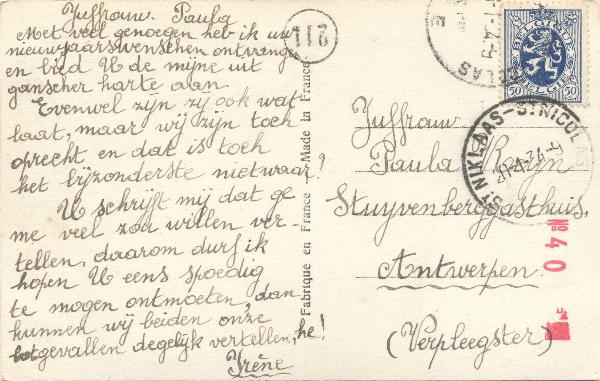 Juffrouw. Paula
Met veel genoegen heb ik uw
nieuwjaarswenschen ontvang
en bied U de mijne uit
ganscher harte aan.
Evenwel zijn zij ook wat
laat, maar wij zijn toch
oprecht en dat is toch
het bijzonderste nietwaar?
U schrijft mij dat ge
me veel zou willen ver-
tellen, daarom durf ik
hopen U eens spoedig
te mogen ontmoeten, dan
kunnen wij beiden onze
lotgevallen degelijk vertellen, he!
Irène
211
Fabrique en France — Made in France
BELGIQUE
BELGIË
50 50
ST NIKLAAS - ST NICOLAS
Juffrouw
Paula
Stuyvenberggasthuis,
Antwerpen.
(Verpleegster)
No 40